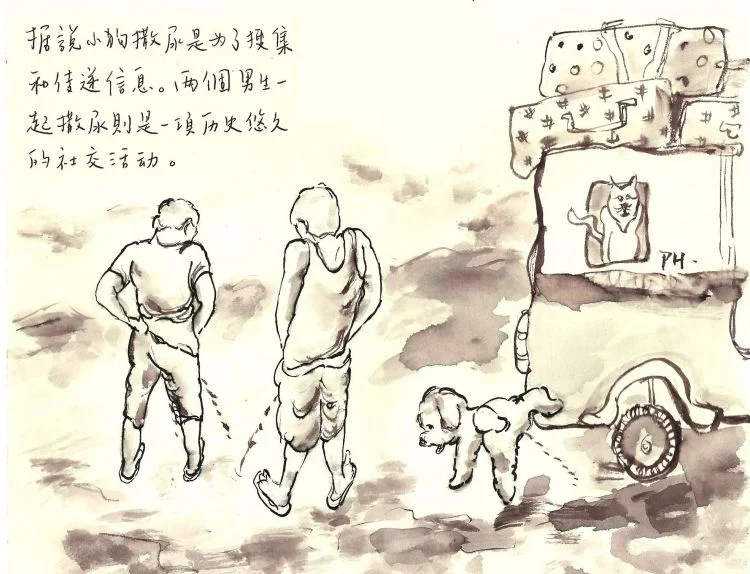 据說小狗撒尿是为了搜集
和传递信息。两個男生一
起撒尿則是一項历史悠久
的社交活动。
PH.